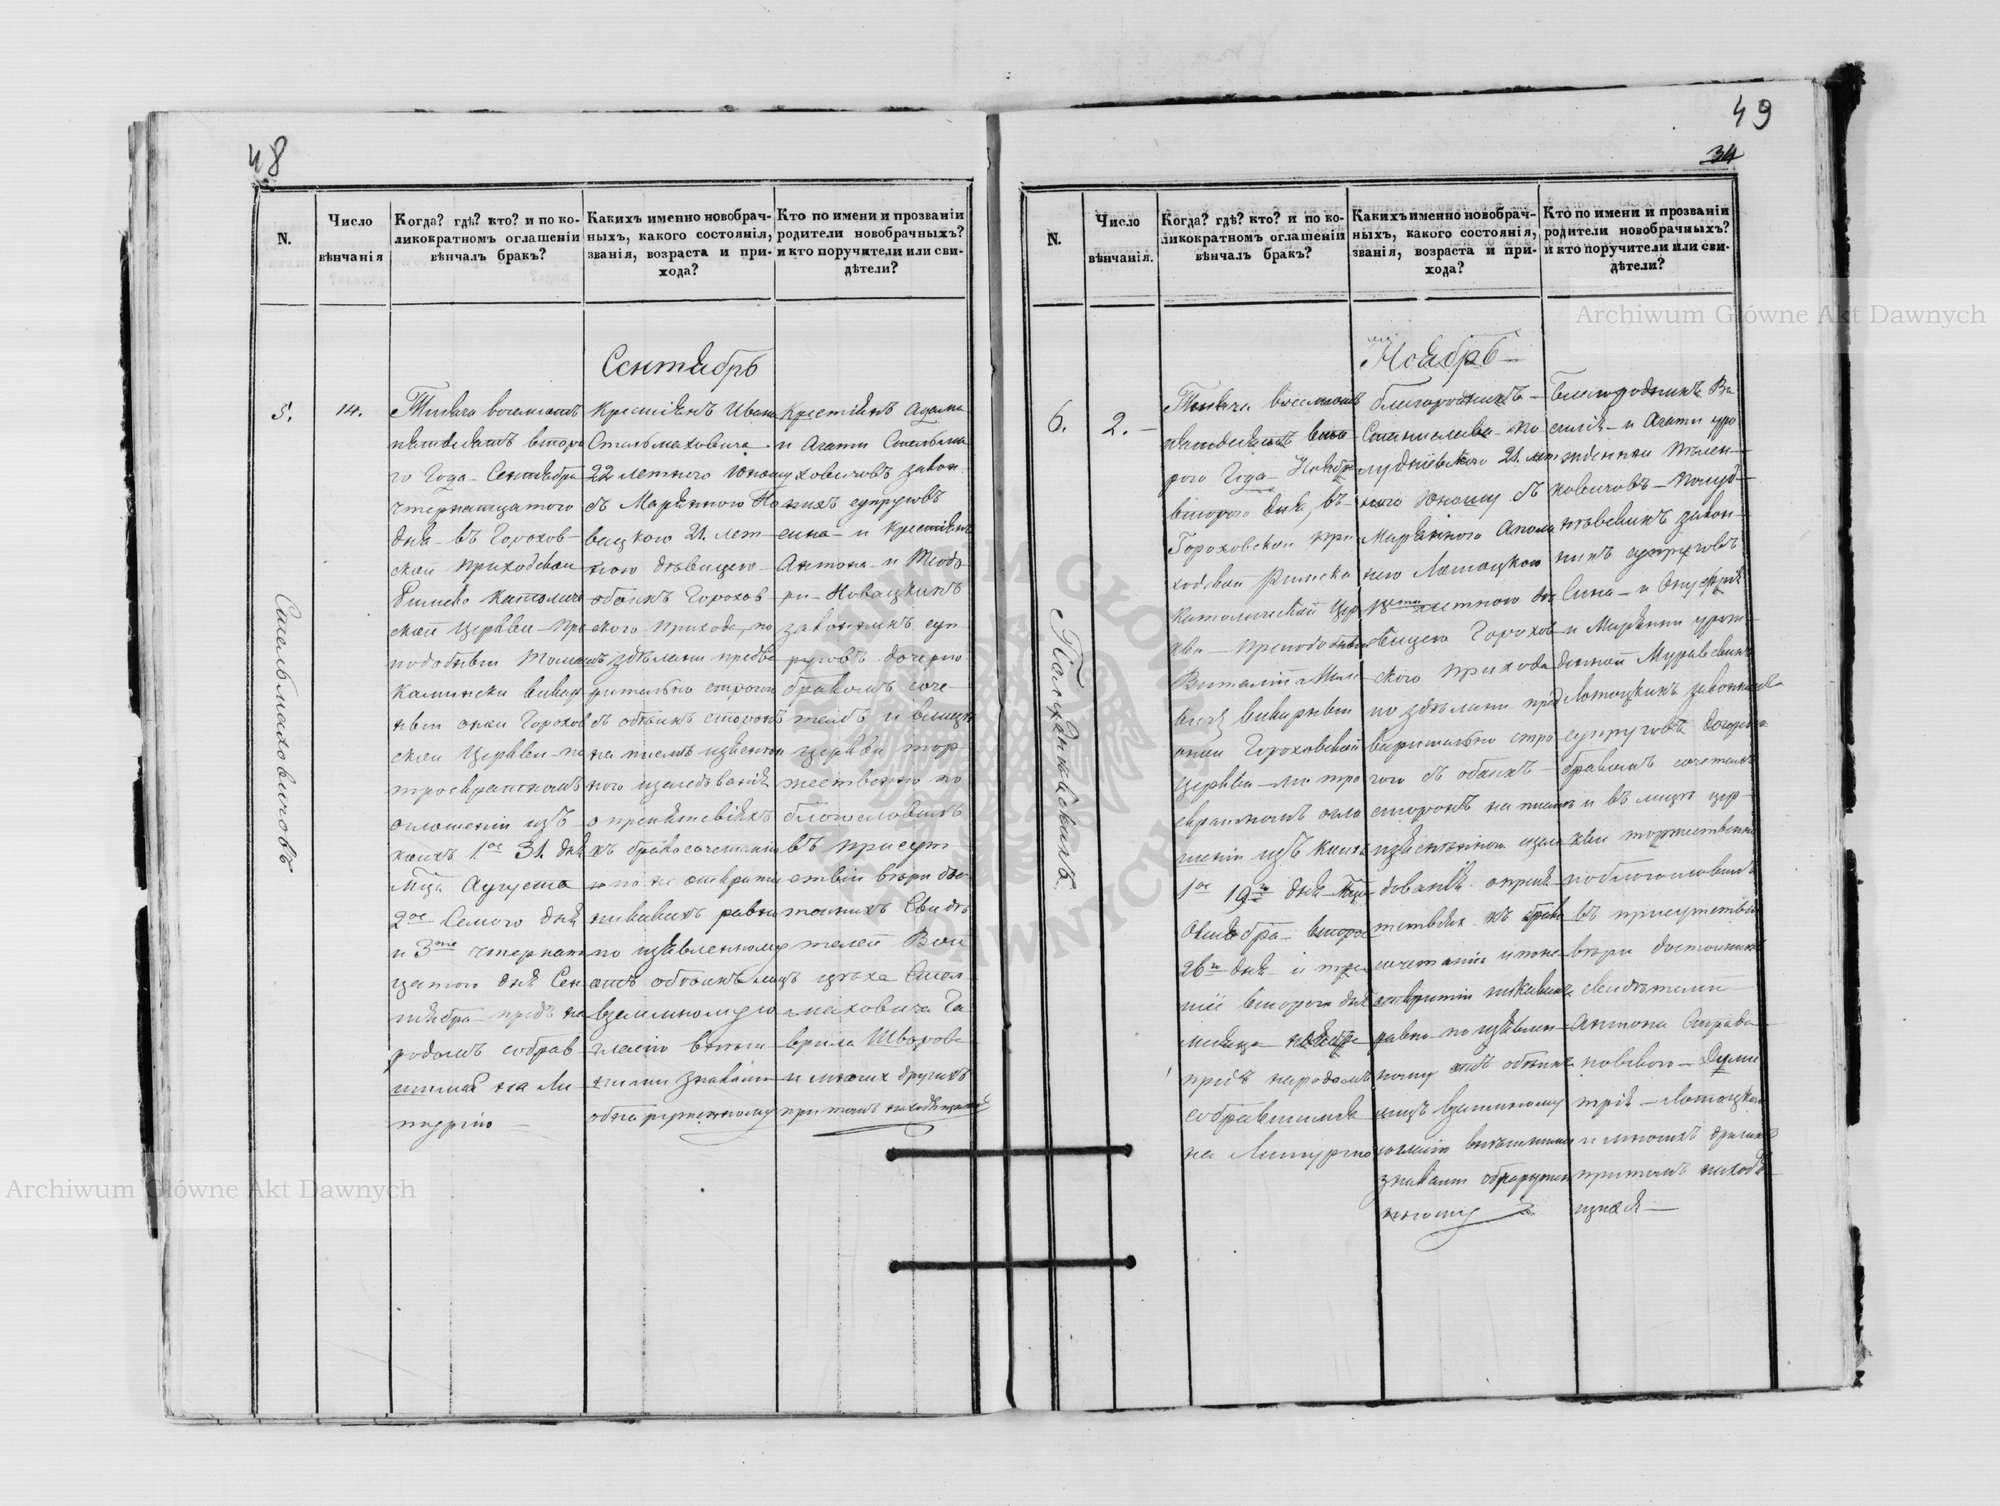 48
N.
Число
вѣнчанія
Когда? гдѣ? кто? и по ко-
ликократномъ оглашеніи
вѣнчалъ бракъ?
Какихъ именно новобрач-
ныхъ, какого состоянія,
званія, возраста и при-
хода?
Кто по имени и прозваніи
родители новобрачныхъ?
и кто поручители или сви-
дѣтели?
Сентябрь
5.
14.
Стельмаховичовъ
Тысяча восемьсотъ
пятдесятъ второ
го Года Сентября
четернацатого
дня въ Горохов-
ской приходской
Римско Католиче
ской Церкви Пре
подобный Томашъ
Камински викар
ный оной Горохов
ской Церкви по
троекратномъ
оглошеніи изъ
коихъ 1ое 31. дня
Мца Августа
2ое Семого дня
и 3тье четернат
цатого дня Сен
тября предъ на
родомъ собрав
шимся на Ли
тургію
Крестянъ Ивана
Стельмаховича
22 летнего Юношу
съ Марянною Но
вацкого 21. лет
ною дѣвицею
обоихъ Горохов
ского прихода, по
здѣлани предва
рительно строгом
съ обоихъ сторонъ
на писмѣ изяснен
ного изследванія
о препятствіяхъ
къ бракосочетанію
и по не открыти
никакихъ равно
по изявленному
отъ обоихъ лицъ
взаимному со
гласію внеш
ними знаками
обнаруженному
Крестянъ Адама
и Агати Стельма
ховичовъ закон
нихъ супруговъ
сина и Крестянъ
Антона и Теодо
ри Новацкихъ
законныхъ суп
руговъ дочерю
бракомъ соче
талъ и в лице
церкви тор
жественно по
благословилъ
въ присут
ствіи вѣри до
стоиныхъ Свидѣ
телей Вои
цѣха Стел
маховича Га
врила Шворова
и многих другихъ
при томъ находящихся
49
34
N.
Число
вѣнчанія.
Когда? гдѣ? кто? и по ко-
ликократномъ оглашеніи
вѣнчалъ бракъ?
Какихъ именно новобрач-
ныхъ, какого состоянія,
званія, возраста и при-
хода?
Кто по имени и прозваніи
родители новобрачныхъ?
и кто поручители или сви-
дѣтели?
Ноябрь
6.
2.
Тысяча восемьсотъ
пятдесятъ вто
рого Года Ноября
второго дня, въ
Гороховской при
ходской Римско
Католической Цер
кви преподобный
Виталій
викарный
оной Гороховской
Церкви по тро
екратномъ огло
шеніи изъ коихъ
1ое 19го дня Мца
Октября второе
26го дня и тре
тіе второго дня
месяца ноября
предъ народомъ
собравшимся
на Литургію
благородныхъ
Станислава По
луднѣвского 21. лет
ного Юношу съ
Марянною Апола
нею Лотоцкою
летною дѣ
вицею Горохов
ского прихода
по здѣлани пред
варительно стро
гого съ обоихъ
сторонъ на писмѣ
изясненного изсле
дованія о препя
тствіях къ брако
сочетанію и по не
открытіи никакихъ
равно по изявлен
ному отъ обоихъ
лицъ взаимному
согласію внешними
знаками обнаружен
ному
благородныхъ Ва
силія и Агати уро
жденной
ковичовъ Полуд
нѣвскихъ закон
нихъ супруговъ
Сина и Онуфрія
и Марянни урож
денной Муравскихъ
Лотоцкихъ законныхъ
супруговъ дочерью
бракомъ сочеталъ
и въ лицѣ цер
кви торжественно
поблогословилъ
въ присутствіи
вѣри достоиныхъ
свидѣтелей
Антона
повского Думи
трія Лотоцкого
и многихъ другихъ
притомъ находя
щихся
Archiwum Główne Akt Dawnych
Archiwum Główne Akt Dawnych